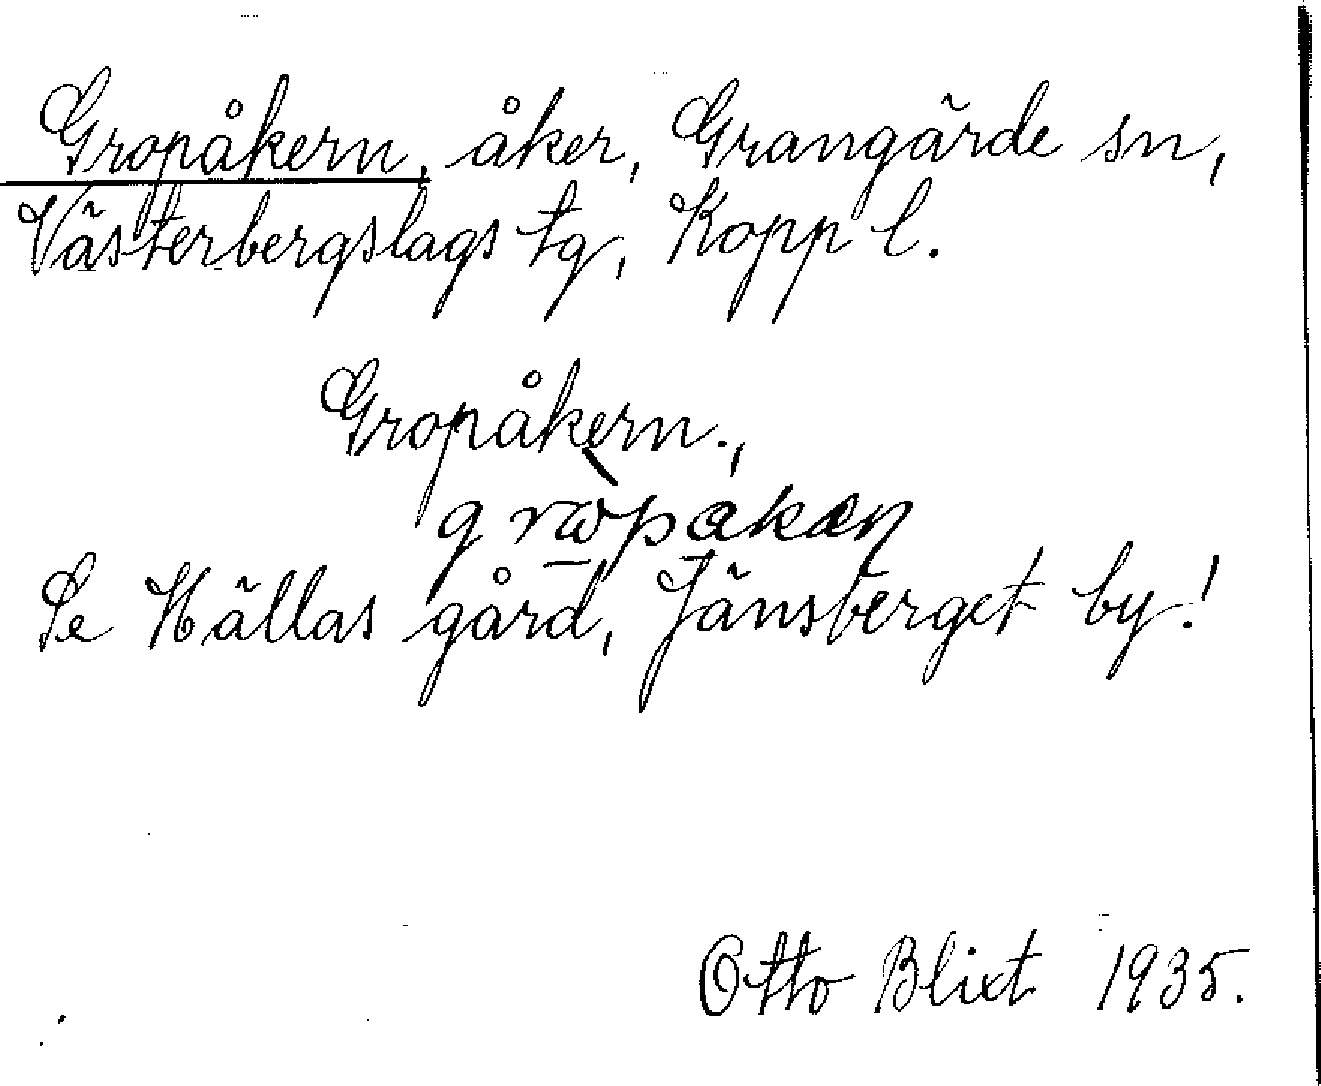 Gropåkern, åker, Grangärde sn,
Västerbergslags tg, Kopp l.
Gropåkern.,
Se Hällas gård, Jänsberget by!
Otto Blixt 1935.